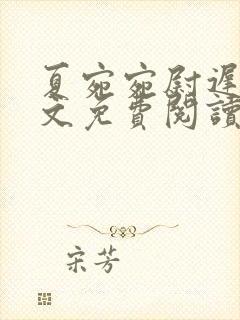 夏宛宛尉遲
文免費閱讀
宋芳